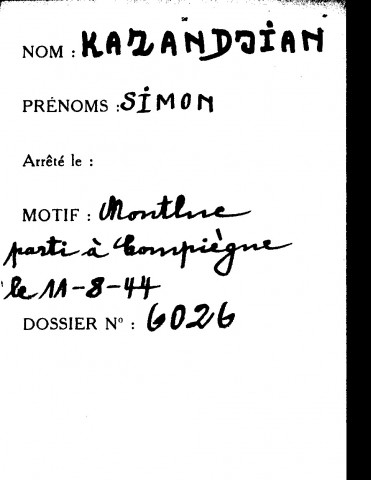 NOM : KAZANDJIAN
PRÉNOMS : SIMON
Arrêté le :
MOTIF : Montluc
parti à Compiègne
le 11-8-44
DOSSIER N° : 6026